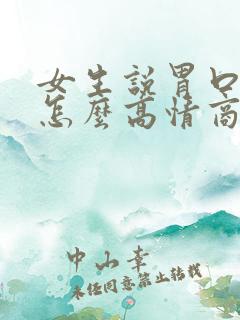 女生說胃口
怎麼高情商
中山幸
未经同意禁止转载